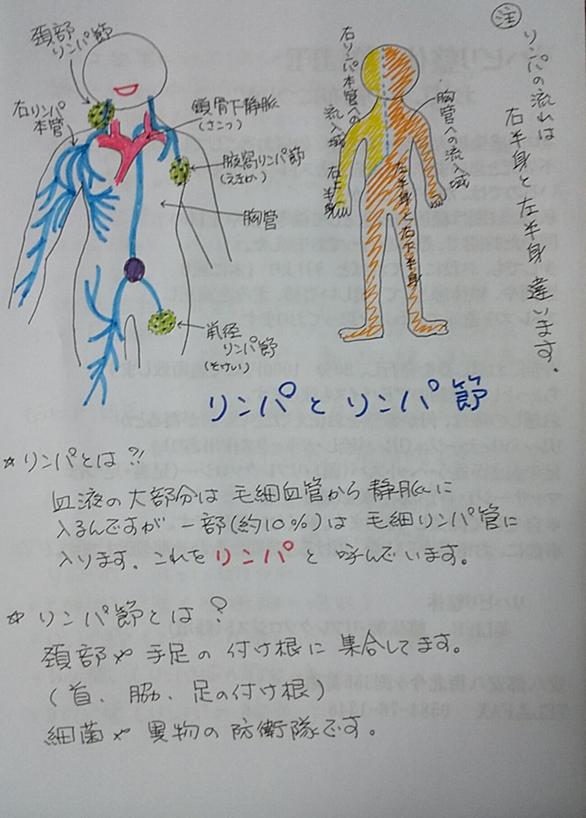 注
リンパの流れは
右半身と左半身
違います。
頚部
リンパ節
右リンパ
本管
鎖骨下静脈
(さこつ)
腋窩リンパ節
(えきか)
胸管
鼡径
リンパ節
(そけい)
右リンパ本管への
流入域
右上半身
胸管への流入域
左半身と右下半身
リンパとリンパ節
☆リンパとは?!
血液の大部分は毛細血管から静脈に
入るんですが一部(約10%)は毛細リンパ管に
入ります。これをリンパと呼んでいます。
☆リンパ節とは?
頚部や手足の付け根に集合してます。
(首、脇、足の付け根)
細菌や異物の防衛隊です。